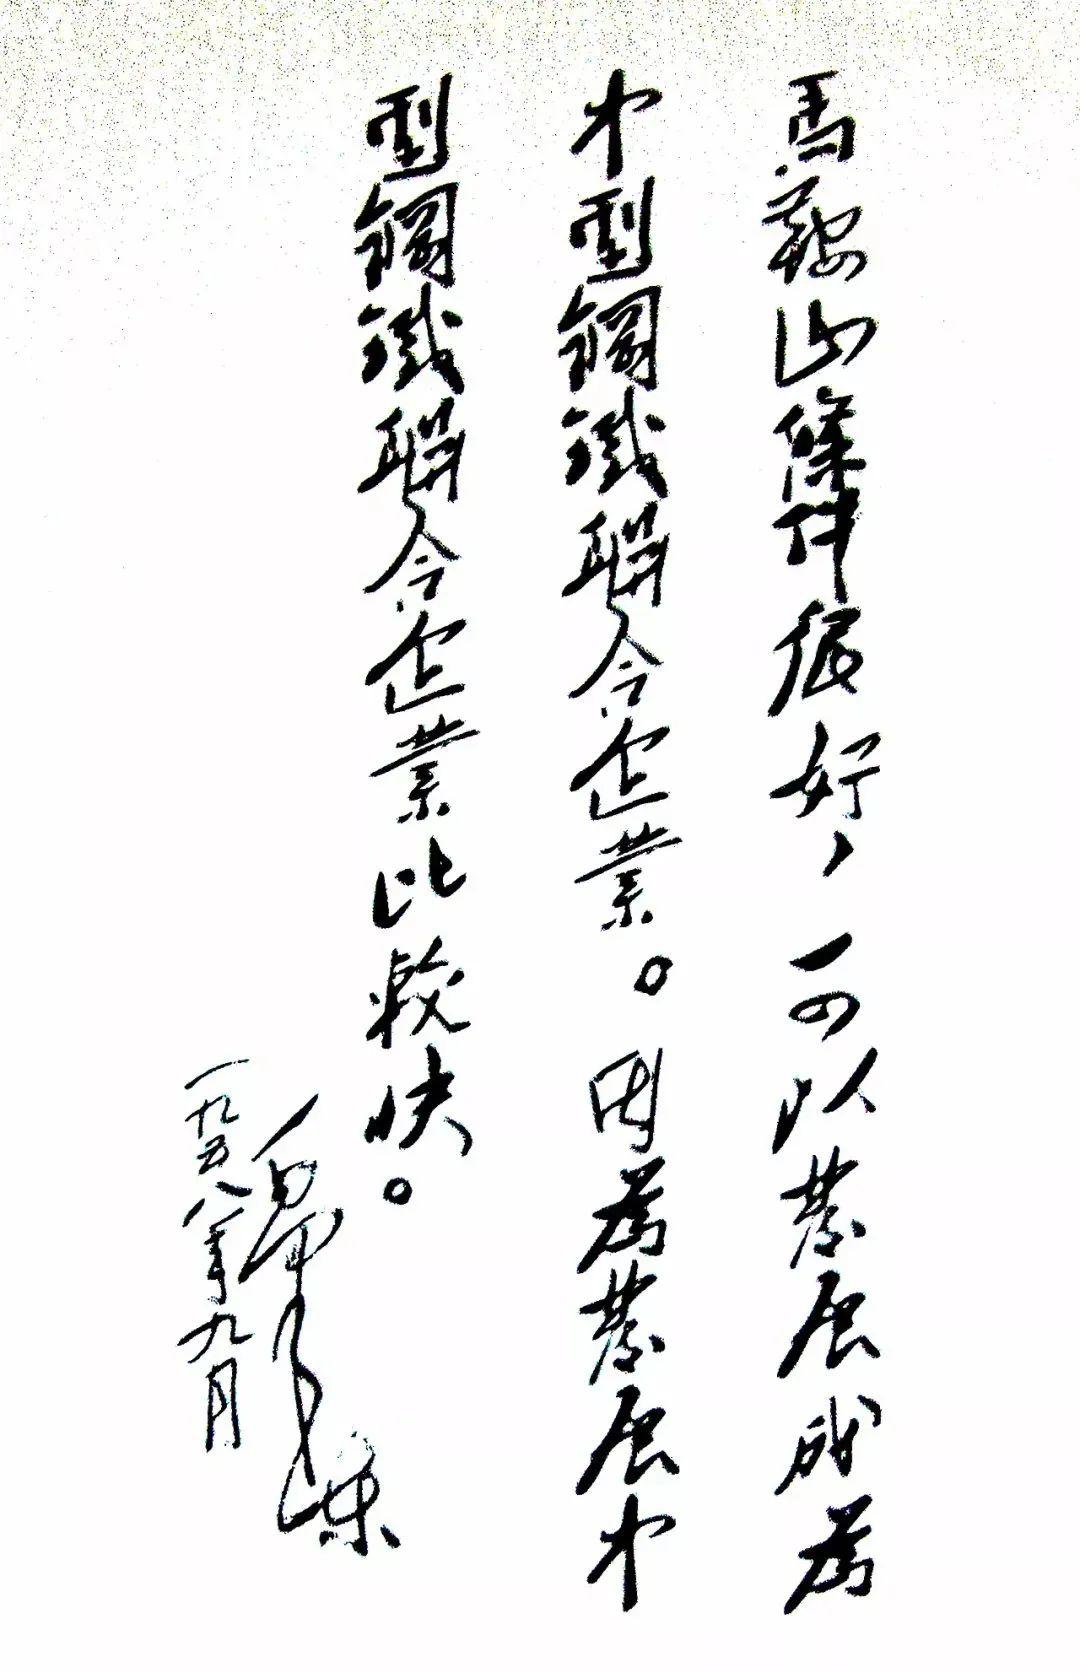 馬鞍山條件很好，可以發展成為
中型鋼鐵聯合企業。因為發展中
型鋼鐵聯合企業比較快。
一九五八年九月